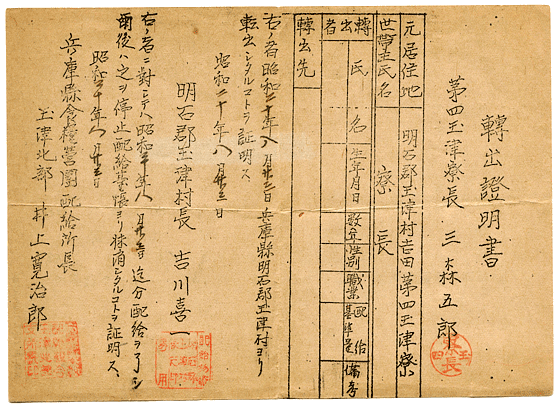 轉出證明書
第四玉津寮長 三森五郎
元居住地 明石郡玉津村吉田第四玉津寮
世帶主氏名 寮長
轉出者 氏名 生年月日 數年 性別 職業 配給基準量 備考
轉出先
右ノ者昭和二十年八月廿三日兵庫縣明石郡玉津村ヨリ
転出シタルコトヲ証明ス
昭和二十年八月廿三日
明石郡玉津村長 吉川喜一
右ノ者ニ對シテハ昭和二十年八月廿 迄分配給ヲ了シ
爾後ハ之ヲ停止配給臺帳ヨリ抹消シタルコトヲ証明ス
昭和二十年八月廿三日
兵庫縣食糧營團配給所長
玉津北部 井上寛治郎